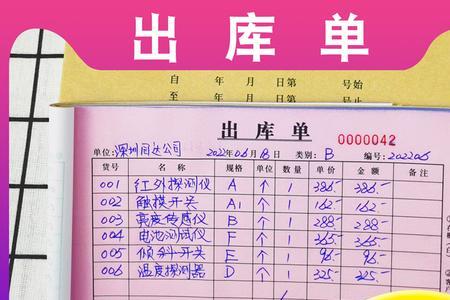 出库单
自 年 月 日第 号始
至 年 月 日第 号止
出库单 0000042
单位:深圳同达公司 2022年06月18日 类别:B 编号:202206
货号 名称 规格 单位 数量 单价 金额 备注
001 红外探测仪 A 个 1 386- 386-
002 触摸开关 A1 个 1 162- 162-
003 亮度传感仪 B 个 1 288- 288-
004 电池测试仪 F 个 1 365- 365-
005 倾斜开关 E 个 1 96- 96-
006 温度探测器 D 个 1 325- 325-